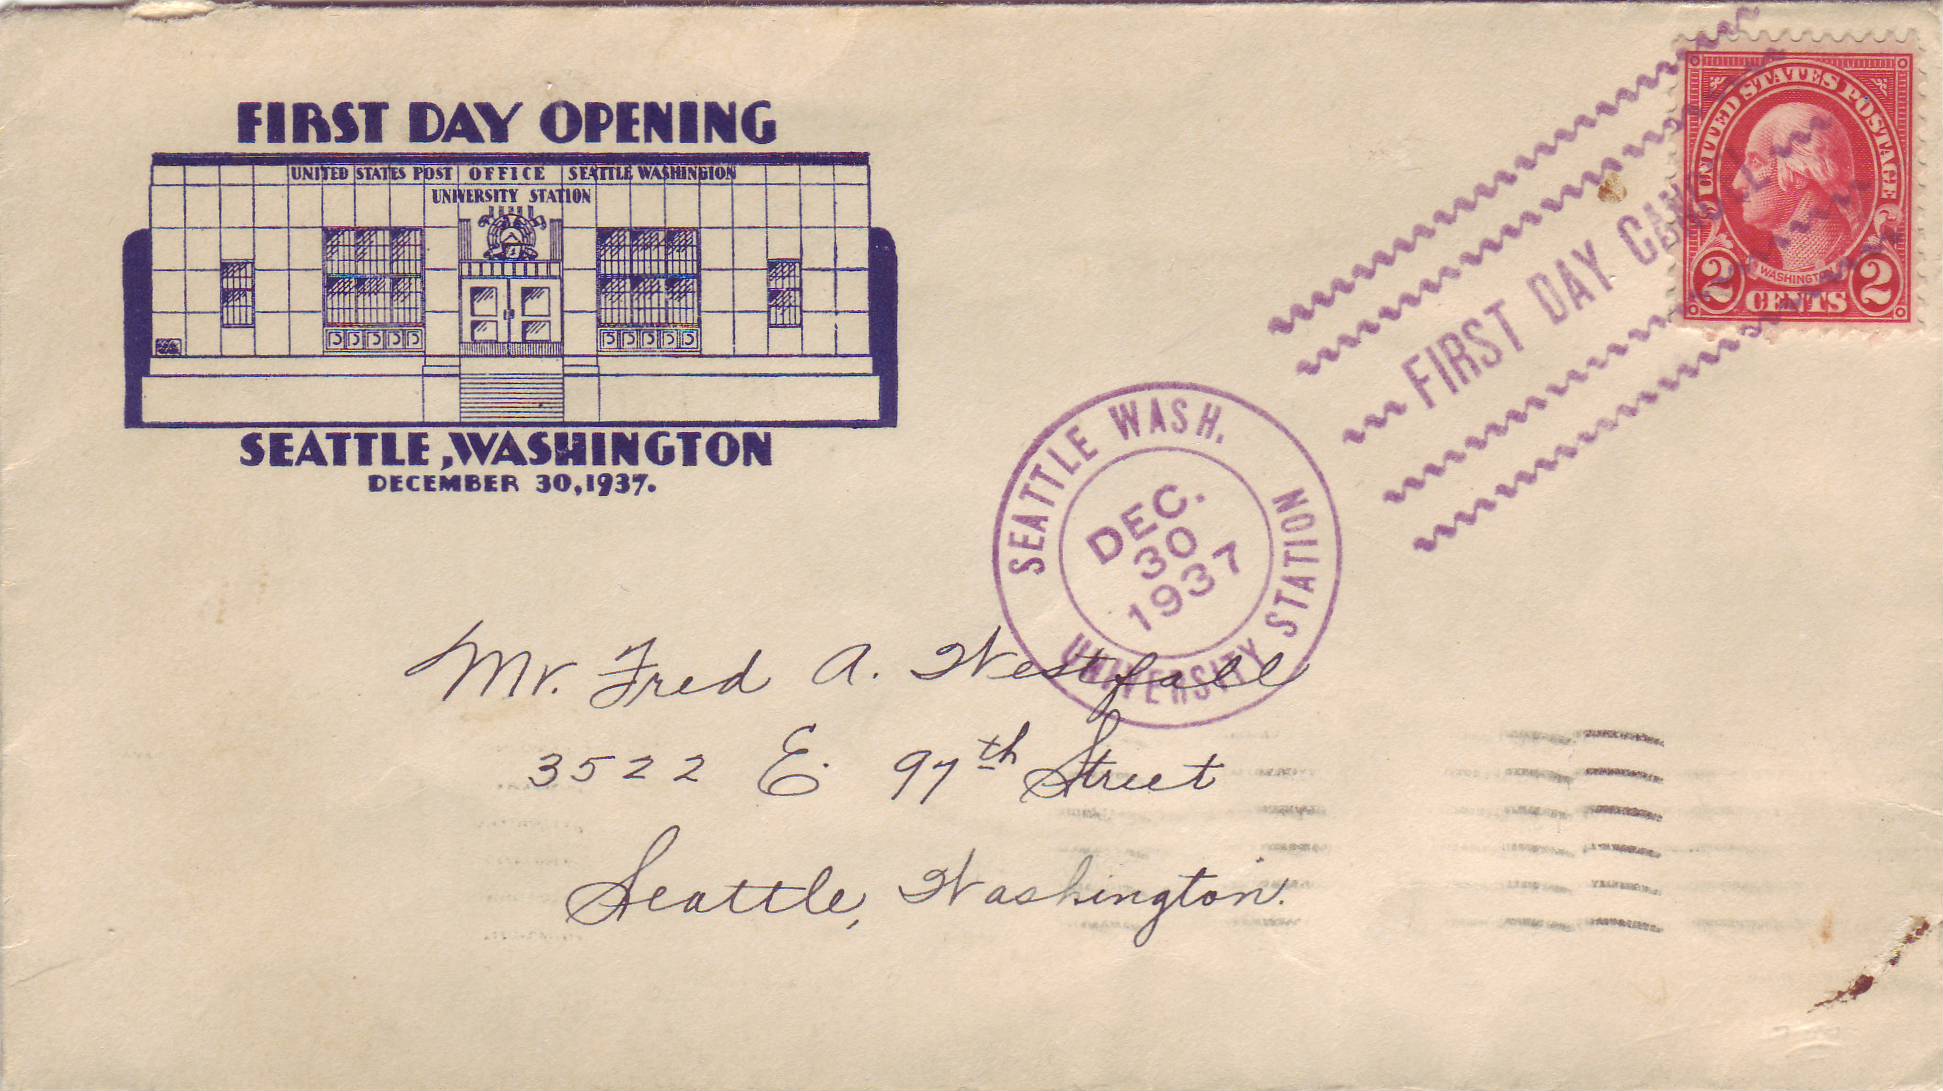 FIRST DAY OPENING
UNITED STATES POST OFFICE SEATTLE WASHINGTON
UNIVERSITY STATION
SEATTLE, WASHINGTON
DECEMBER 30, 1937.
UNITED STATES POSTAGE
WASHINGTON
2 CENTS 2
FIRST DAY CANCEL
SEATTLE WASH.
UNIVERSITY STATION
DEC.
30
1937
Mr. Fred A. Westfall
3522 E. 97th Street
Seattle, Washington.